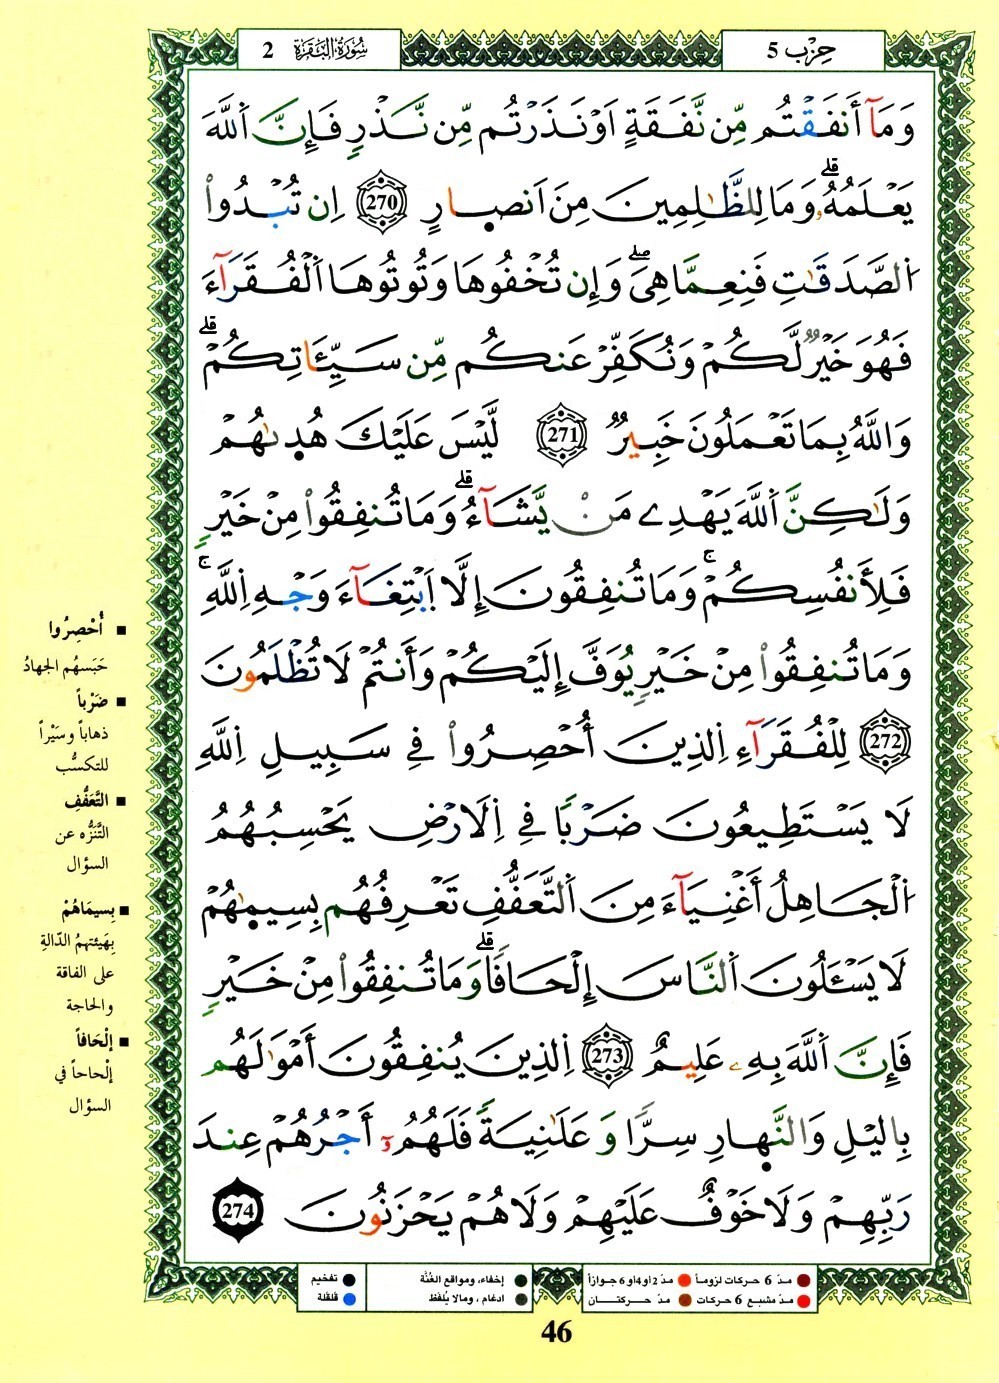 حِزْب 5
سُورَةُ البَقَرَة 2
وَمَآ أَنفَقْتُم مِّن نَّفَقَةٍ اَوْ نَذَرْتُم مِّن نَّذْرٍ فَإِنَّ اَ۬للَّهَ
يَعْلَمُهُۥۖ وَمَا لِلظَّٰلِمِينَ مِنَ اَنصٍ۪ارٍ 270 اِن تُبْدُواْ
اُ۬لصَّدَقَٰتِ فَنِعِمَّا هِيَۖ وَإِن تُخْفُوهَا وَتُوتُوهَا اَ۬لْفُقَرَآءَ
فَهُوَ خَيْرٌ لَّكُمْ وَنُكَفِّرْ عَنكُم مِّن سَيِّـَٔاتِكُمْۖ
وَاللَّهُ بِمَا تَعْمَلُونَ خَبِيرٌ 271 لَّيْسَ عَلَيْكَ هُد۪ىٰهُمْ
وَلَٰكِنَّ اَ۬للَّهَ يَهْدِے مَنْ يَّشَآءُۖ وَمَا تُنفِقُواْ مِنْ خَيْرٍ
فَلِأَنفُسِكُمْۚ وَمَا تُنفِقُونَ إِلَّا اَ۪بْتِغَآءَ وَجْهِ اِ۬للَّهِۚ
وَمَا تُنفِقُواْ مِنْ خَيْرٍ يُوَفَّ إِلَيْكُمْ وَأَنتُمْ لَا تُظْلَمُونَ
272 لِلْفُقَرَآءِ اِ۬لذِينَ أُحْصِرُواْ فِي سَبِيلِ اِ۬للَّهِ
لَا يَسْتَطِيعُونَ ضَرْبًا فِي اِ۬لَارْضِ يَحْسِبُهُمُ
اُ۬لْجَاهِلُ أَغْنِيَآءَ مِنَ اَ۬لتَّعَفُّفِ تَعْرِفُهُم بِسِيمٰ۪هُمْ
لَا يَسْـَٔلُونَ اَ۬لنَّاسَ إِلْحَافًاۖ وَمَا تُنفِقُواْ مِنْ خَيْرٍ
فَإِنَّ اَ۬للَّهَ بِهِۦ عَلِيمٌ 273 اِ۬لذِينَ يُنفِقُونَ أَمْوَٰلَهُم
بِاليْلِ وَالنَّه۪ارِ سِرًّا وَعَلَٰنِيَةً فَلَهُمُۥٓ أَجْرُهُمْ عِندَ
رَبِّهِمْ وَلَا خَوْفٌ عَلَيْهِمْ وَلَا هُمْ يَحْزَنُونَ 274
■ أُحْصِرُوا
حَبَسهُم الجهادُ
■ ضَرْباً
ذهاباً وسَيْراً
للتكسُّب
■ التَّعَفُّفِ
التَّنَزُّه عن
السؤال
■ بِسِيمَاهُمْ
بِهَيئتهِمُ الدّالةِ
على الفاقة
والحاجة
■ إلْحَافاً
إلحاحاً في
السؤال
● مدّ 6 حركات لزوماً ● مدّ 2 أو 4 أو 6 جوازاً
● مدّ مشبع 6 حركات ● مدّ حركتان
● إخفاء، ومواقع الغُنَّة
● ادغام ، ومالا يُلفظ
● تفخيم
● قلقلة
46